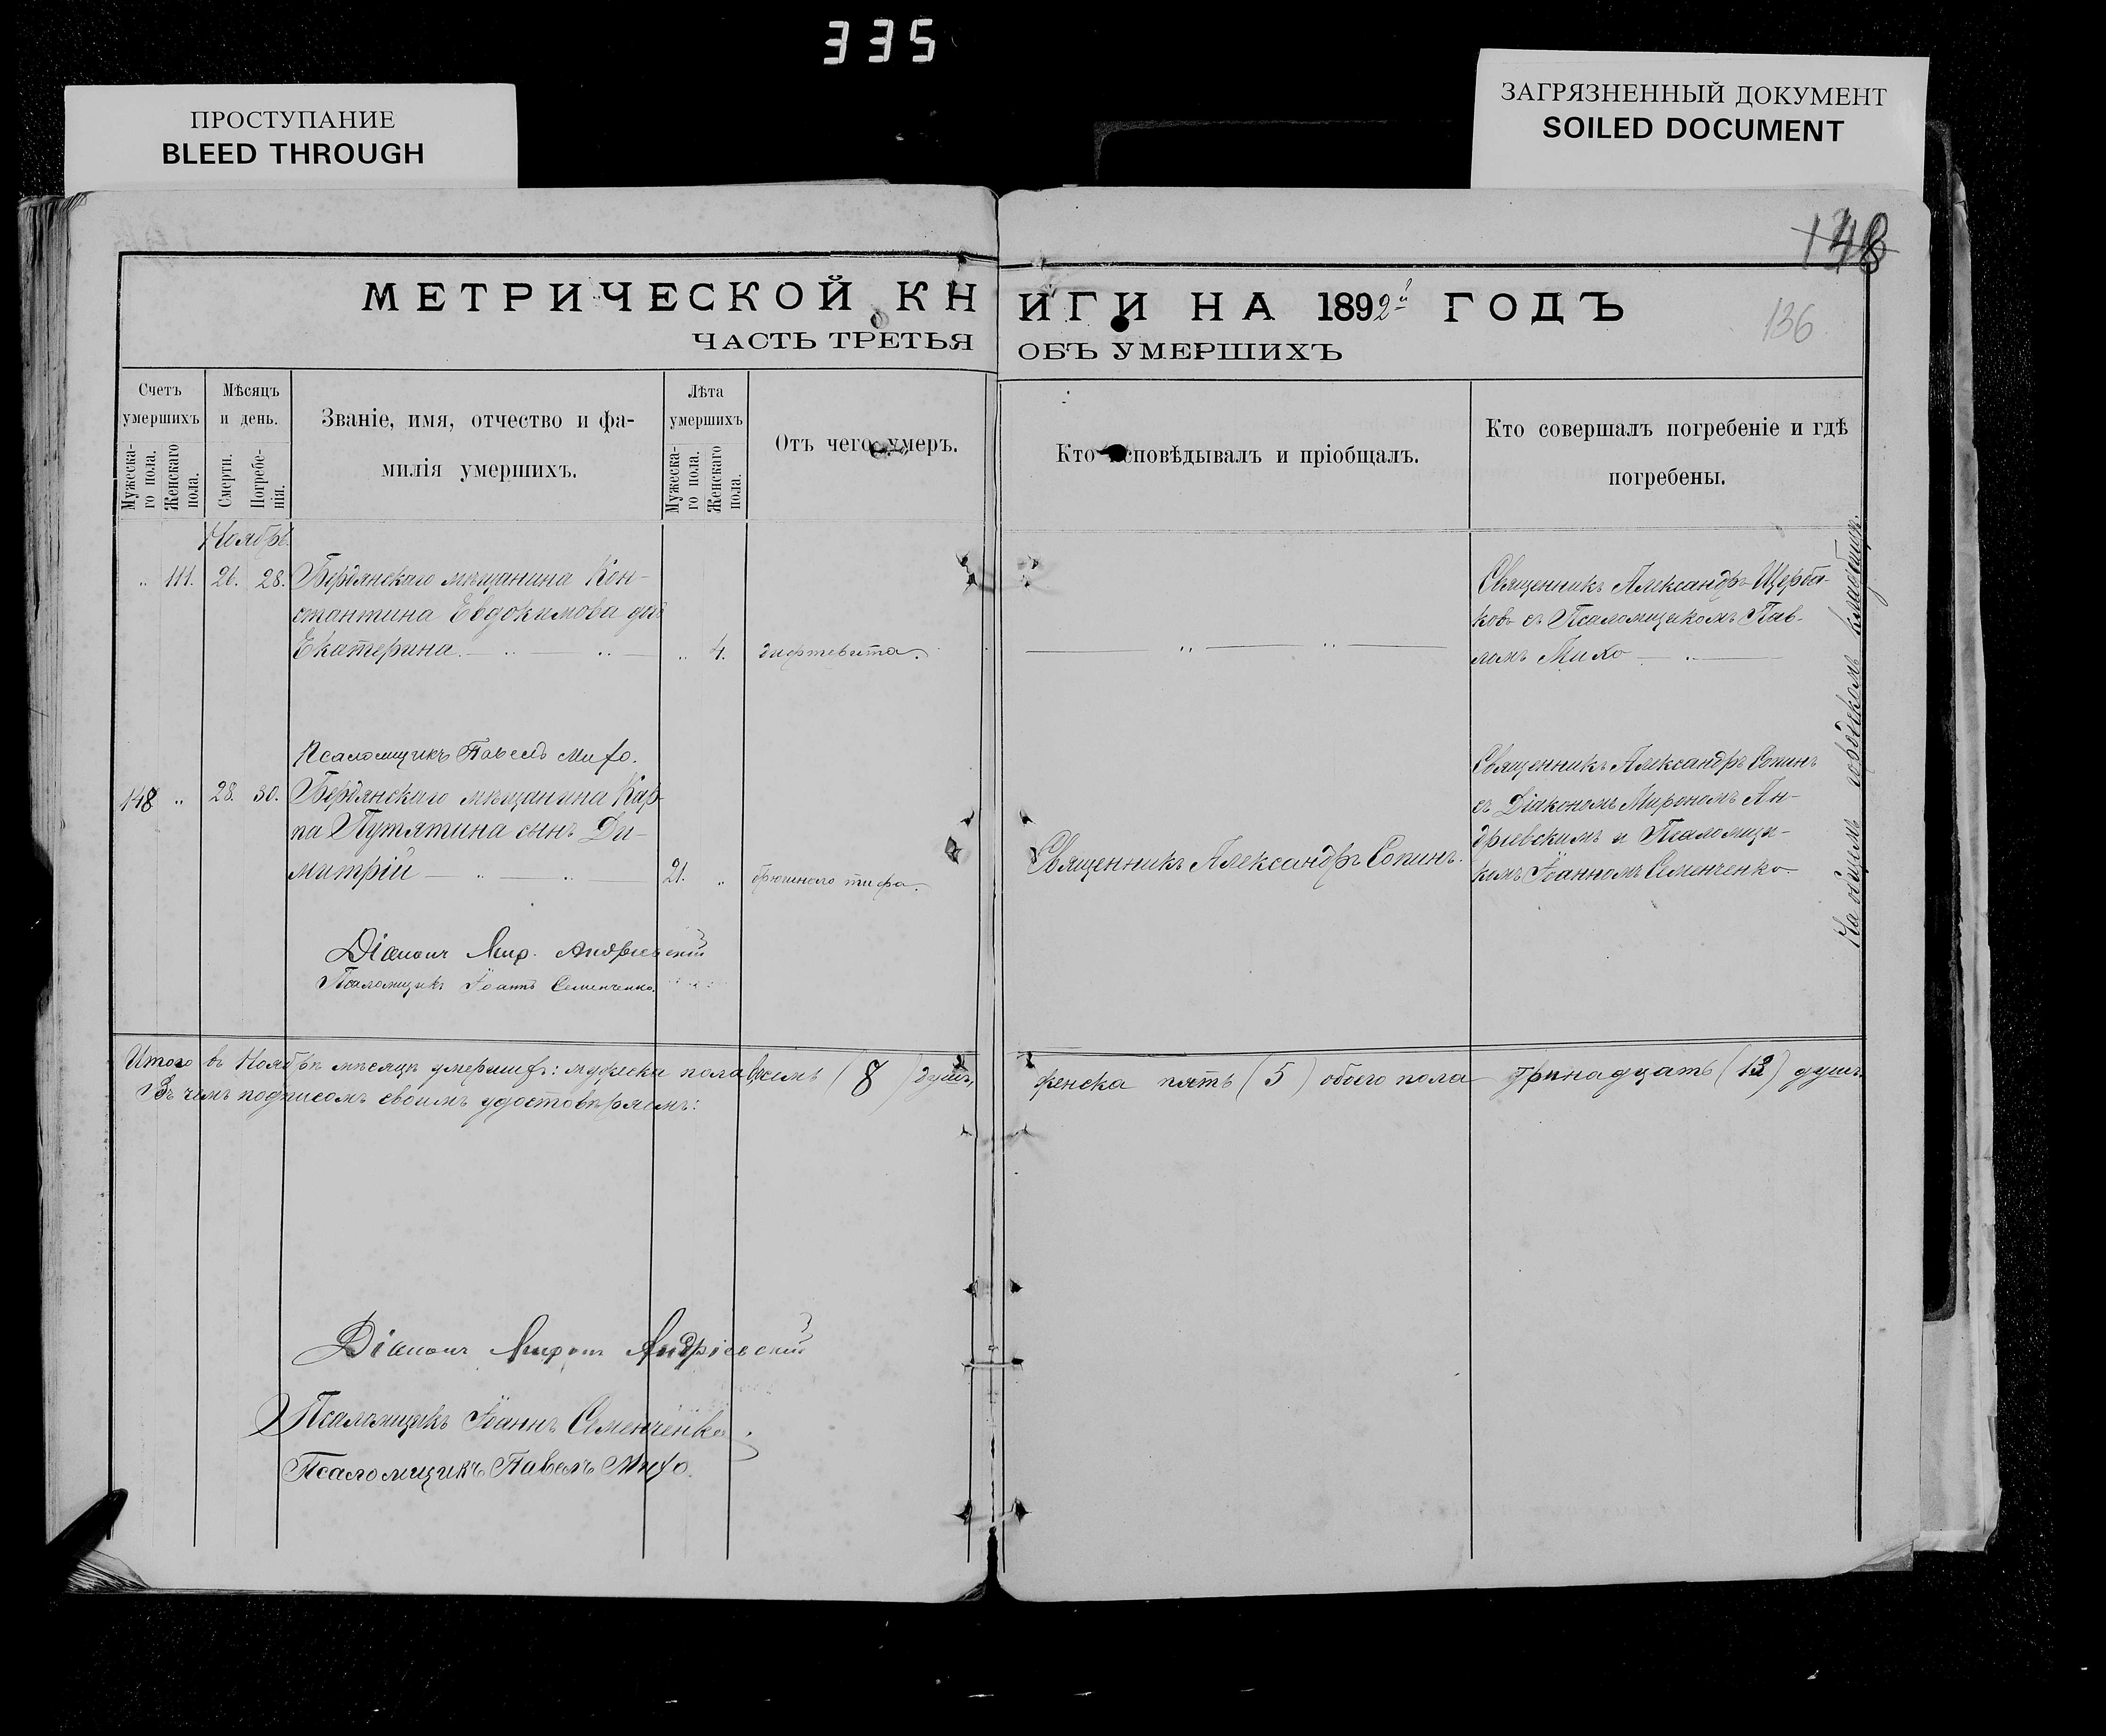 335
ПРОСТУПАНИЕ
BLEED THROUGH
ЗАГРЯЗНЕННЫЙ ДОКУМЕНТ
SOILED DOCUMENT
148
136
МЕТРИЧЕСКОЙ КНИГИ НА 1892й ГОДЪ
ЧАСТЬ ТРЕТЬЯ ОБЪ УМЕРШИХЪ
Счетъ умершихъ
Мужескаго пола.
Женскаго пола.
Мѣсяцъ и день.
Смерти.
Погребенія.
Званіе, имя, отчество и фа-
милія умершихъ.
Лѣта умершихъ
Мужескаго пола.
Женскаго пола.
Отъ чего умеръ.
Кто исповѣдывалъ и пріобщалъ.
Кто совершалъ погребеніе и гдѣ
погребены.
Ноябрь
" 111. 26. 28. Бердянскаго мѣщанина Кон-
стантина Евдокимова дчь
Екатерина. " 4. дифтерита.
Священникъ Александръ Щерба-
ковъ съ Псаломщикомъ Пав-
ломъ Михо
Псаломщикъ Павелъ Михо.
148 " 28. 30. Бердянскаго мѣщанина Кар-
па Путятина сынъ Ди-
митрій 21. " брюшного тифа.
Священникъ Александръ Сопинъ.
Священникъ Александръ Сопинъ
съ Діакономъ Мирономъ Ан-
дріевскимъ и Псаломщи-
комъ Іоанномъ Семенченко
На общемъ городскомъ кладбищѣ.
Діаконъ Мир. Андріевскій
Псаломщикъ Іоаннъ Семенченко.
Итого въ Ноябрѣ мѣсяцѣ умерших: мужеска пола восемь (8) душъ, женска пять (5) обоего пола тринадцать (13) душъ.
Въ чемъ подписомъ своимъ удостовѣряемъ:
Діаконъ Миронъ Андріевскій
Псаломщикъ Іоаннъ Семенченко
Псаломщикъ Павелъ Михо.